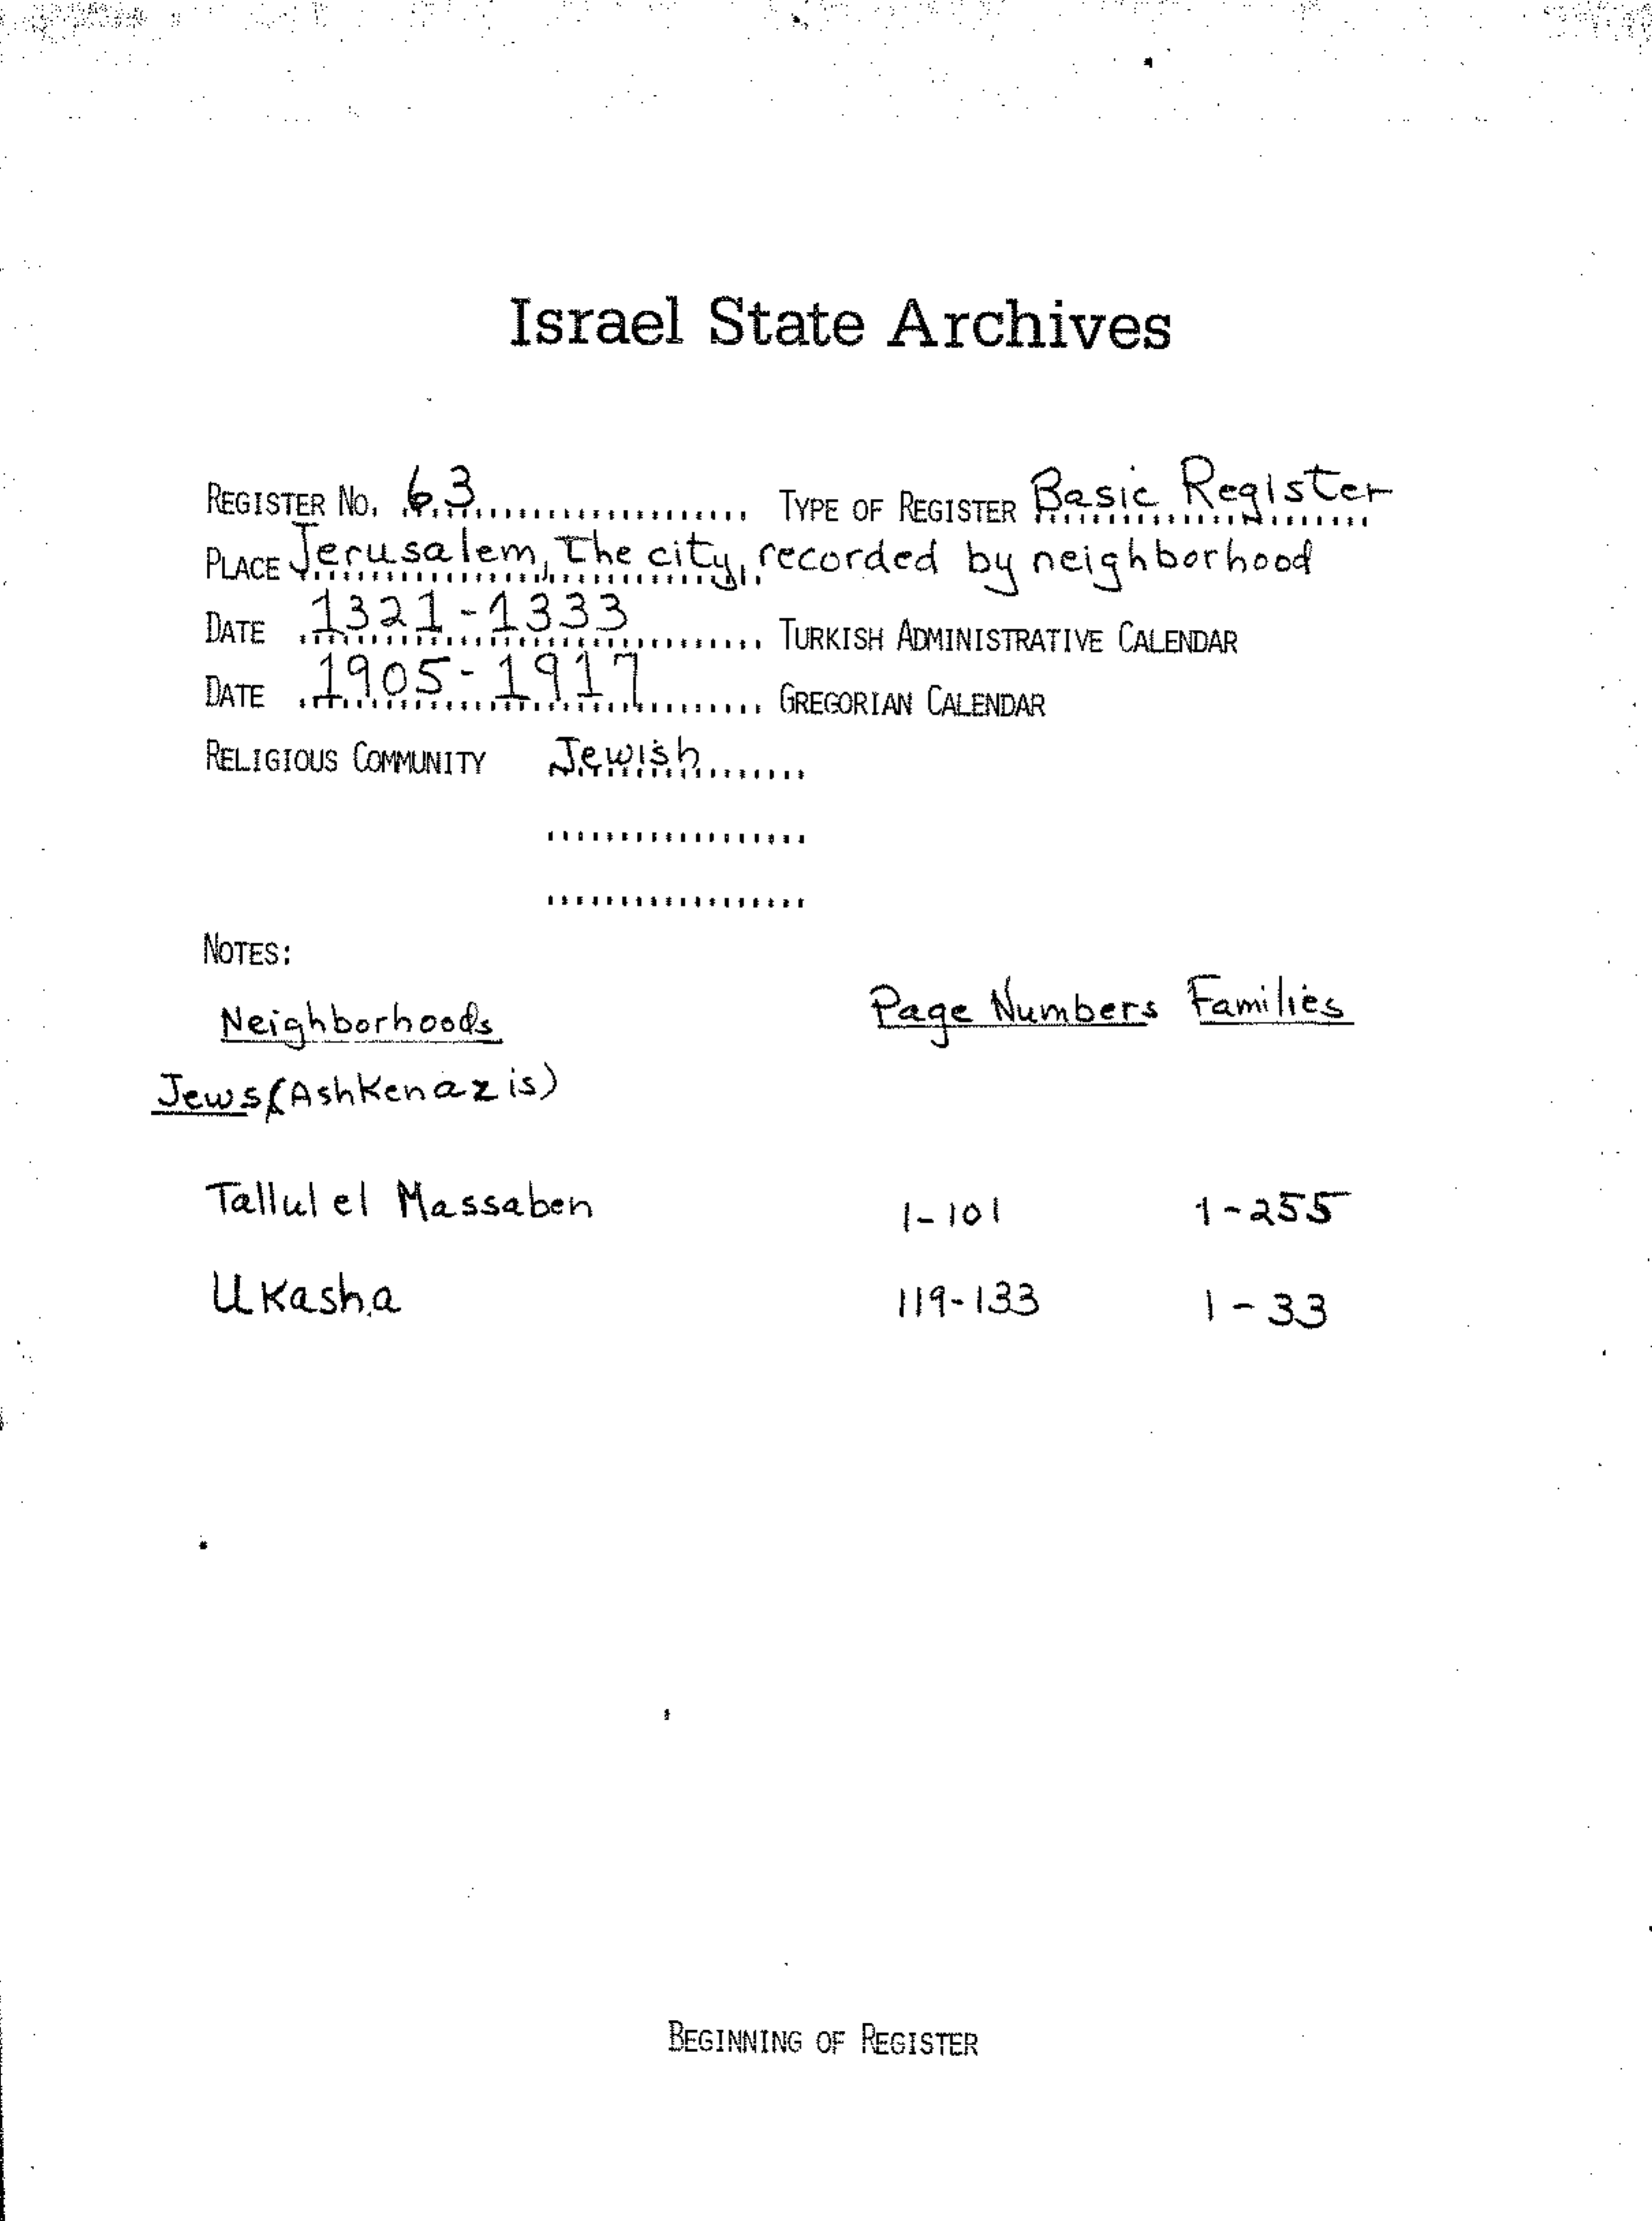 Israel State Archives
REGISTER NO. 63 TYPE OF REGISTER Basic Register
PLACE Jerusalem, The city, recorded by neighborhood
DATE 1321-1333 TURKISH ADMINISTRATIVE CALENDAR
DATE 1905-1917 GREGORIAN CALENDAR
RELIGIOUS COMMUNITY Jewish
NOTES:
Neighborhoods Page Numbers Families
Jews (Ashkenazis)
Tallul el Massaben 1-101 1-255
Ukasha 119-133 1-33
BEGINNING OF REGISTER